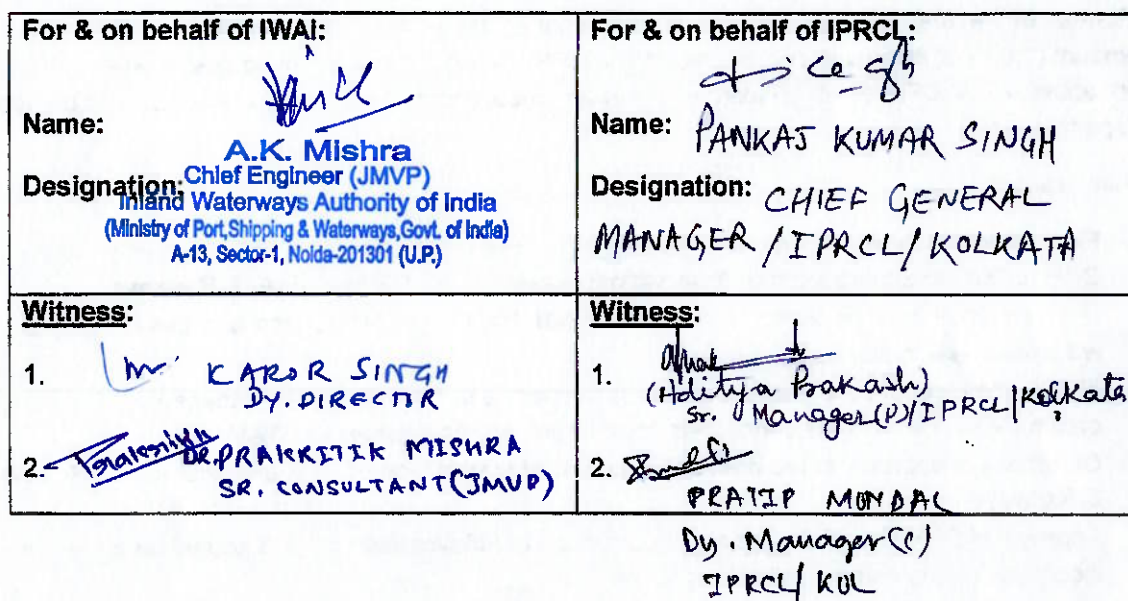 For & on behalf of IWAI:
Name:
A.K. Mishra
Designation: Chief Engineer (JMVP)
Inland Waterways Authority of India
(Ministry of Port,Shipping & Waterways,Govt. of India)
A-13, Sector-1, Noida-201301 (U.P.)
For & on behalf of IPRCL:
Name: PANKAJ KUMAR SINGH
Designation: CHIEF GENERAL
MANAGER/IPRCL/KOLKATA
Witness:
1. KAROR SINGH
DY. DIRECTOR
2. DR. PRAKRITIK MISHRA
SR. CONSULTANT (JMVP)
Witness:
1.
(Aditya Prakash)
Sr. Manager(P)/IPRCL/Kolkata
2.
PRATIP MONDAL
Dy. Manager(C)
IPRCL/KOL